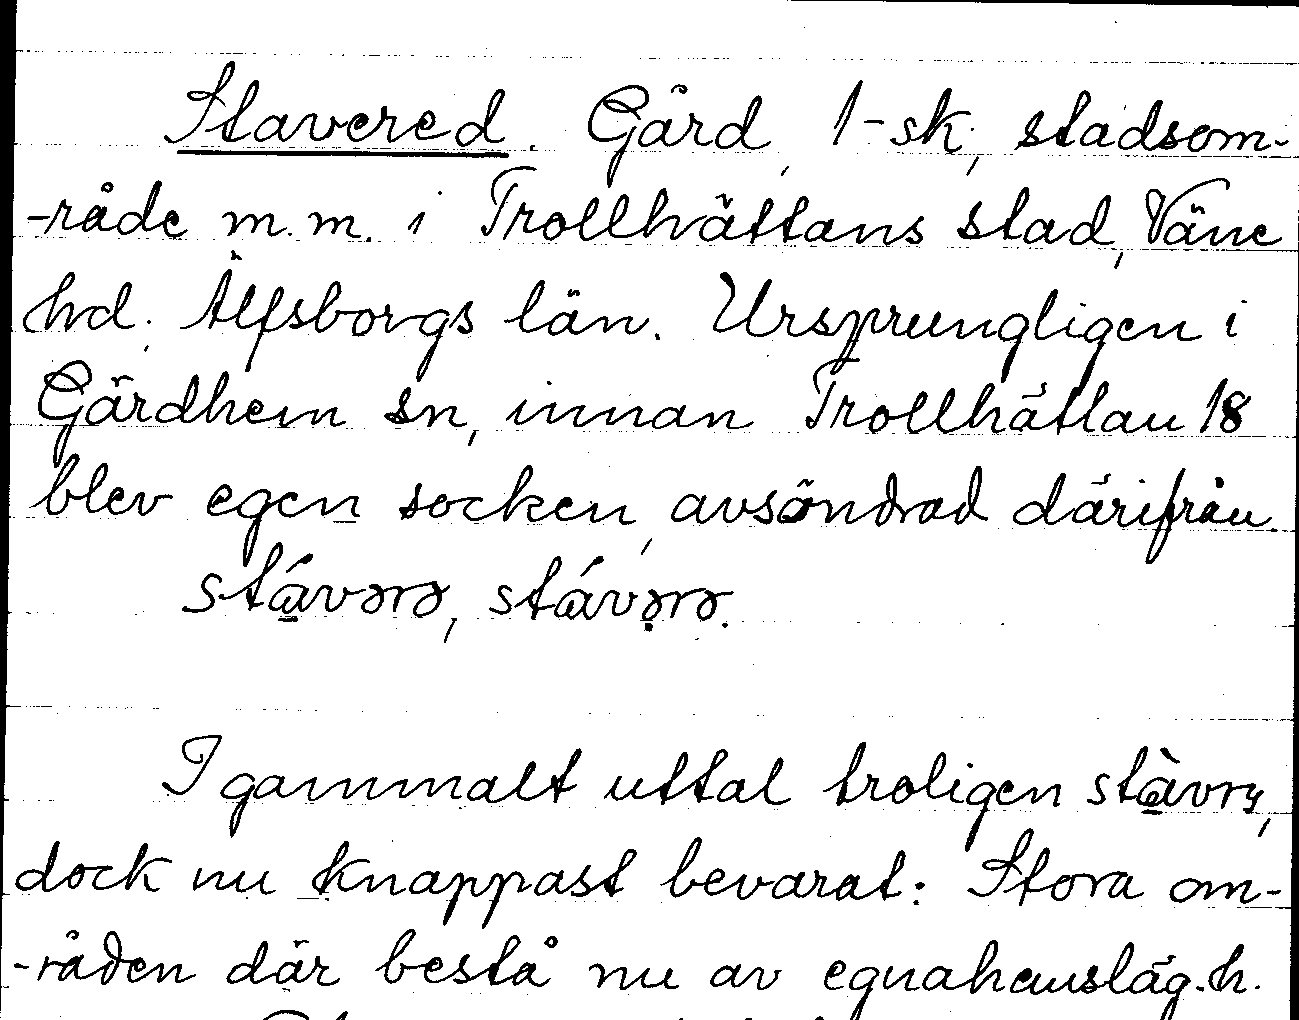 Stavered. Gård, 1-sk, stadsom-
-råde m.m. i Trollhättans stad, Väne
hd. Älfsborgs län. Ursprungligen i
Gärdhem sn, innan Trollhättan 18
blev egen socken, avsöndrad därifrån.
stávərə, stávə̣rə.
I gammalt uttal troligen stàvry,
dock nu knappast bevarat: Stora om-
-råden där bestå nu av egnahemsläg.h.